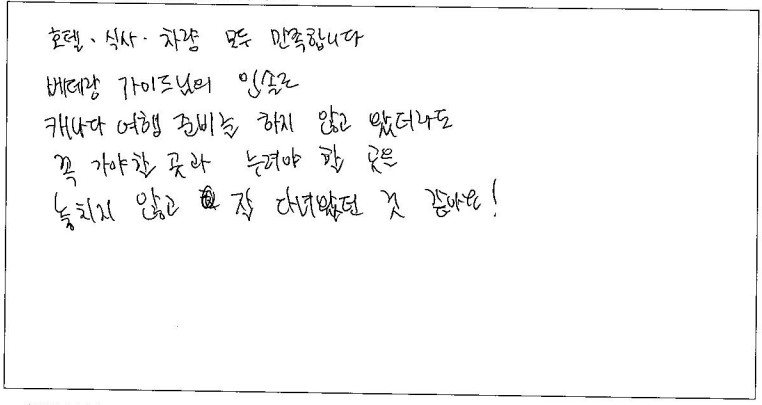 호텔·식사·차량 모두 만족합니다
베테랑 가이드님의 인솔로
캐나다 여행 준비를 하지 않고 왔더라도
꼭 가야할 곳과 누려야 할 곳은
놓치지 않고 잘 다녀왔던 것 같아요!